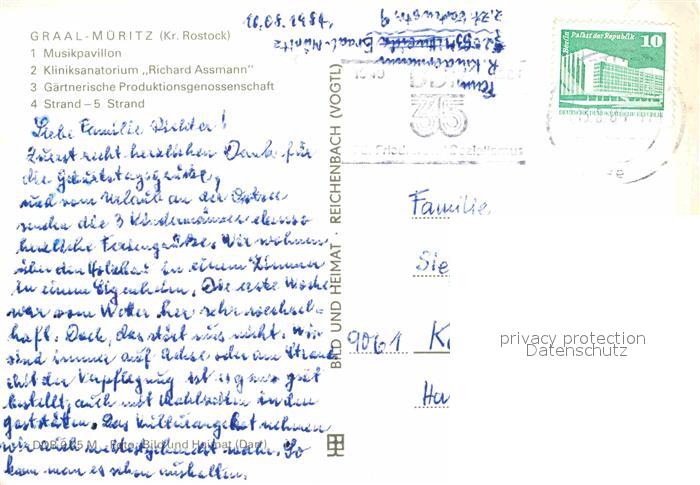 GRAAL-MÜRITZ (Kr. Rostock)
1 Musikpavillon
2 Kliniksanatorium „Richard Assmann"
3 Gärtnerische Produktionsgenossenschaft
4 Strand – 5 Strand
Liebe Familie Richter!
Zuerst recht herzlichen Dank für
die Geburtstagsgrüße,
und vom Urlaub an der Ostsee
senden die 3 Kindermänner ebenso
herzliche Feriengrüße. Wir wohnen
über den in einem Zimmer
in einem Eigenheim. Die erste Woche
war vom Wetter her sehr wechsel-
haft. Doch, das stört uns nicht. Wir
sind immer auf Achse oder am Strand
Mit der Verpflegung ist es ganz gut
bestellt, auch mit Mahlzeiten in den
Gaststätten. Das Kulturangebot nehmen
wir auch wahr. So
kann man es schon aushalten.
Foto: Bild und Heimat (Darr)
BILD UND HEIMAT · REICHENBACH (VOGTL)
Fam.
R. Kindermann
Graal-Müritz
DDR
35
Berlin, Palast der Republik
10
DEUTSCHE DEMOKRATISCHE REPUBLIK
Familie
Sie
9061 K
Ha
privacy protection
Datenschutz